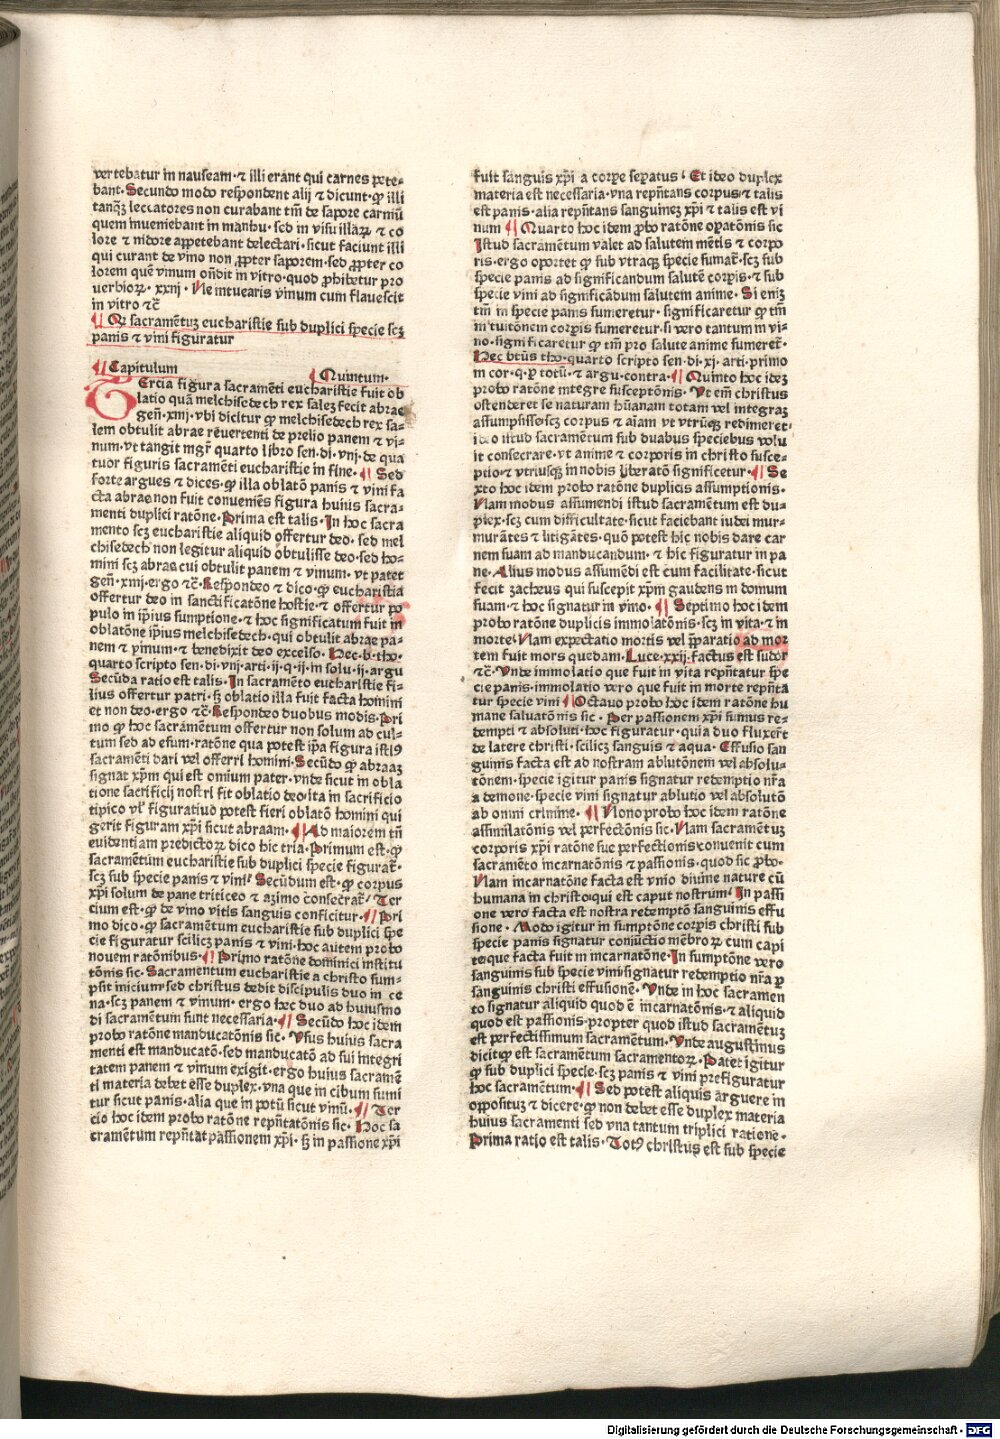 vertebatur in nauseam· ⁊ illi erant qui carnes pete-
bant· Secundo modo respondent alij ⁊ dicunt· ꝙ illi
tanqȝ leccatores non curabant tm̄ de sapore carniū
quem inueniebant in manhu· sed in visu illaꝝ ⁊ co
lore ⁊ nidore appetebant delectari· sicut faciunt illi
qui curant de vino non ꝓpter saporem· sed ꝓpter co
lorem quē vinum on̄dit in vitro· quod ꝓhibetur pro
uerbioꝝ· xxnj· Ne intuearis vinum cum flauescit
in vitro ⁊c̄
¶ Qꝛ sacramētuȝ eucharistie sub duplici specie scȝ
panis ⁊ vini figuratur
¶ Capitulum ¶ Quintum·
Tercia figura sacramēti eucharistie fuit ob
latio quā melchisedech rex saleȝ fecit abrae
gen̄· xnij· vbi dicitur ꝙ melchisedech rex sa-
lem obtulit abrae reuertenti de prelio panem ⁊ vi-
num· vt tangit mgr̄ quarto libro sen· di· vnj· de qua
tuor figuris sacramēti eucharistie in fine· ¶ Sed
forte argues ⁊ dices· ꝙ illa oblatō panis ⁊ vini fa
cta abrae non fuit conueniēs figura huius sacra-
menti duplici ratōne· Prima est talis· In hoc sacra
mento scȝ eucharistie aliquid offertur deo· sed mel
chisedech non legitur aliquid obtulisse deo· sed ho-
mini scȝ abrae cui obtulit panem ⁊ vinum· vt patet
gen̄· xnij· ergo ⁊c̄· Respondeo ⁊ dico· ꝙ eucharistia
offertur deo in sanctificatōne hostie· ⁊ offertur po
pulo in ip̄ius sumptione· ⁊ hoc significatum fuit in
oblatōne ip̄ius melchisedech· qui obtulit abrae pa-
nem ⁊ vinum· ⁊ benedixit deo excelso· Hec· b· tho·
quarto scripto sen· di· vnj· arti· ij· q· ij· in solu· ij· argu
Secūda ratio est talis· In sacramēto eucharistie fi-
lius offertur patri· sȝ oblatio illa fuit facta homini
et non deo· ergo ⁊c̄· Respondeo duobus modis· Pri
mo ꝙ hoc sacramētum offertur non solum ad cul-
tum sed ad esum· ratōne qua potest ip̄a figura istiꝰ
sacramēti dari vel offerri homini· Secūdo ꝙ abraaȝ
signat xp̄m qui est omnium pater· vnde sicut in obla
tione sacrificij nostri fit oblatio deo· ita in sacrificio
tipico vl' figuratiuo potest fieri oblatō homini qui
gerit figuram xp̄i sicut abraam· ¶ Ad maiorem tn̄
euidentiam predictoꝝ dico hic tria· Primum est· ꝙ
sacramētum eucharistie sub duplici specie figurat̄·
scȝ sub specie panis ⁊ vini· Secūdum est· ꝙ corpus
xp̄i solum de pane triticeo ⁊ azimo consecrat̄· Ter
cium est· ꝙ de vino vitis sanguis conficitur· ¶ Pri
mo dico· ꝙ sacramētum eucharistie sub duplici spe
cie figuratur scilicȝ panis ⁊ vini· hoc autem probo
nouem ratōnibus· ¶ Primo ratōne dominici institu
tōnis sic· Sacramentum eucharistie a christo sum-
psit inicium· sed christus dedit discipulis duo in ce
na· scȝ panem ⁊ vinum· ergo hec duo ad huiusmo
di sacramētum sunt necessaria· ¶ Secūdo hoc idem
probo ratōne manducatōnis sic· Vsus huius sacra
menti est manducatō· sed manducatō ad sui integri
tatem panem ⁊ vinum exigit· ergo huius sacramē
ti materia debet esse duplex· vna que in cibum sumi
tur sicut panis· alia que in potū sicut vinū· ¶ Ter
cio hoc idem probo ratōne repn̄tatōnis sic· Hoc sa
cramētum repn̄tat passionem xp̄i· sȝ in passione xp̄i
fuit sanguis xp̄i a corpe sepatus· Et ideo duplex
materia est necessaria· vna repn̄tans corpus· ⁊ talis
est panis· alia repn̄tans sanguineȝ xp̄i ⁊ talis est vi
num ¶ Quarto hoc idem ꝓbo ratōne opatōnis sic
Istud sacramētum valet ad salutem mētis ⁊ corpo
ris· ergo oportet ꝙ sub vtraqȝ specie sumat̄· scȝ sub
specie panis ad significandum salutē corpis· ⁊ sub
specie vini ad significādum salutem anime· Si eniȝ
tm̄ in specie panis sumeretur· significaretur ꝙ tm̄
in tuitōnem corpis sumeretur· si vero tantum in vi-
no· significaretur ꝙ tm̄ pro salute anime sumeret̄·
Hec btūs tho· quarto scripto sen· di· xj· arti· primo
in cor· q· p totū· ⁊ argu· contra· ¶ Quinto hoc ideȝ
probo ratōne integre susceptōnis· Vt em̄ christus
ostenderet se naturam hūanam totam vel integraȝ
assumpsisse· scȝ corpus ⁊ aīam vt vtrūqȝ redimeret·
ideo istud sacramētum sub duabus speciebus volu
it consecrare· vt anime ⁊ corporis in christo susce-
ptio· ⁊ vtriusqȝ in nobis liberatō significetur· ¶ Se
xto hoc idem probo ratōne duplicis assumptionis·
Nam modus assumendi istud sacramētum est du-
plex· scȝ cum difficultate· sicut faciebant iudei mur-
murātes ⁊ litigātes· quō potest hic nobis dare car
nem suam ad manducandum· ⁊ hic figuratur in pa
ne· Alius modus assumēdi est cum facilitate· sicut
fecit zacheus qui suscepit xp̄m gaudens in domum
suam· ⁊ hoc signatur in vino· ¶ Septimo hoc idem
probo ratōne duplicis immolatōnis· scȝ in vita· ⁊ in
morte· Nam expectatio mortis vel ꝓparatio ad mor
tem fuit mors quedam· Luce· xxij· factus est sudor
⁊c̄· Vnde immolatio que fuit in vita repn̄tatur spe
cie panis· immolatio vero que fuit in morte repn̄ta
tur specie vini ¶ Octauo probo hoc idem ratōne hu
mane saluatōnis sic· Per passionem xp̄i sumus re-
dempti ⁊ absoluti· hoc figuratur· quia duo fluxer̄t
de latere christi· scilicȝ sanguis ⁊ aqua· Effusio san
guinis facta est ad nostram ablutōnem vel absolu-
tōnem· specie igitur panis signatur redemptio nr̄a
a demone· specie vini signatur ablutio vel absolutō
ab omni crimine· ¶ Nono probo hoc idem ratōne
assimilatōnis vel perfectōnis sic· Nam sacramētuȝ
corporis xp̄i ratōne sue perfectionis conuenit cum
sacramēto incarnatōnis ⁊ passionis· quod sic ꝓbo·
Nam incarnatōne facta est vnio diuine nature cū
humana in christo qui est caput nostrum· In passi
one vero facta est nostra redemptō sanguinis effu
sione· Modo igitur in sumptōne corpis christi sub
specie panis signatur coniūctio mēbroꝝ cum capi
te que facta fuit in incarnatōne· In sumptōne vero
sanguinis sub specie vini signatur redemptio nr̄a ꝑ
sanguinis christi effusionē· Vnde in hoc sacramen
to signatur aliquid quod ē incarnatōnis· ⁊ aliquid
quod est passionis· propter quod istud sacramētuȝ
est perfectissimum sacramentum· Vnde augustinus
dicit ꝙ est sacramētum sacramentoꝝ· Patet igitur
ꝙ sub duplici specie· scȝ panis ⁊ vini prefiguratur
hoc sacramētum· ¶ Sed potest aliquis arguere in
oppositūȝ ⁊ dicere· ꝙ non debet esse duplex materia
huius sacramenti sed vna tantum triplici ratione·
Prima ratio est talis· Totꝰ christus est sub specie
Digitalisierung gefördert durch die Deutsche Forschungsgemeinschaft - DFG